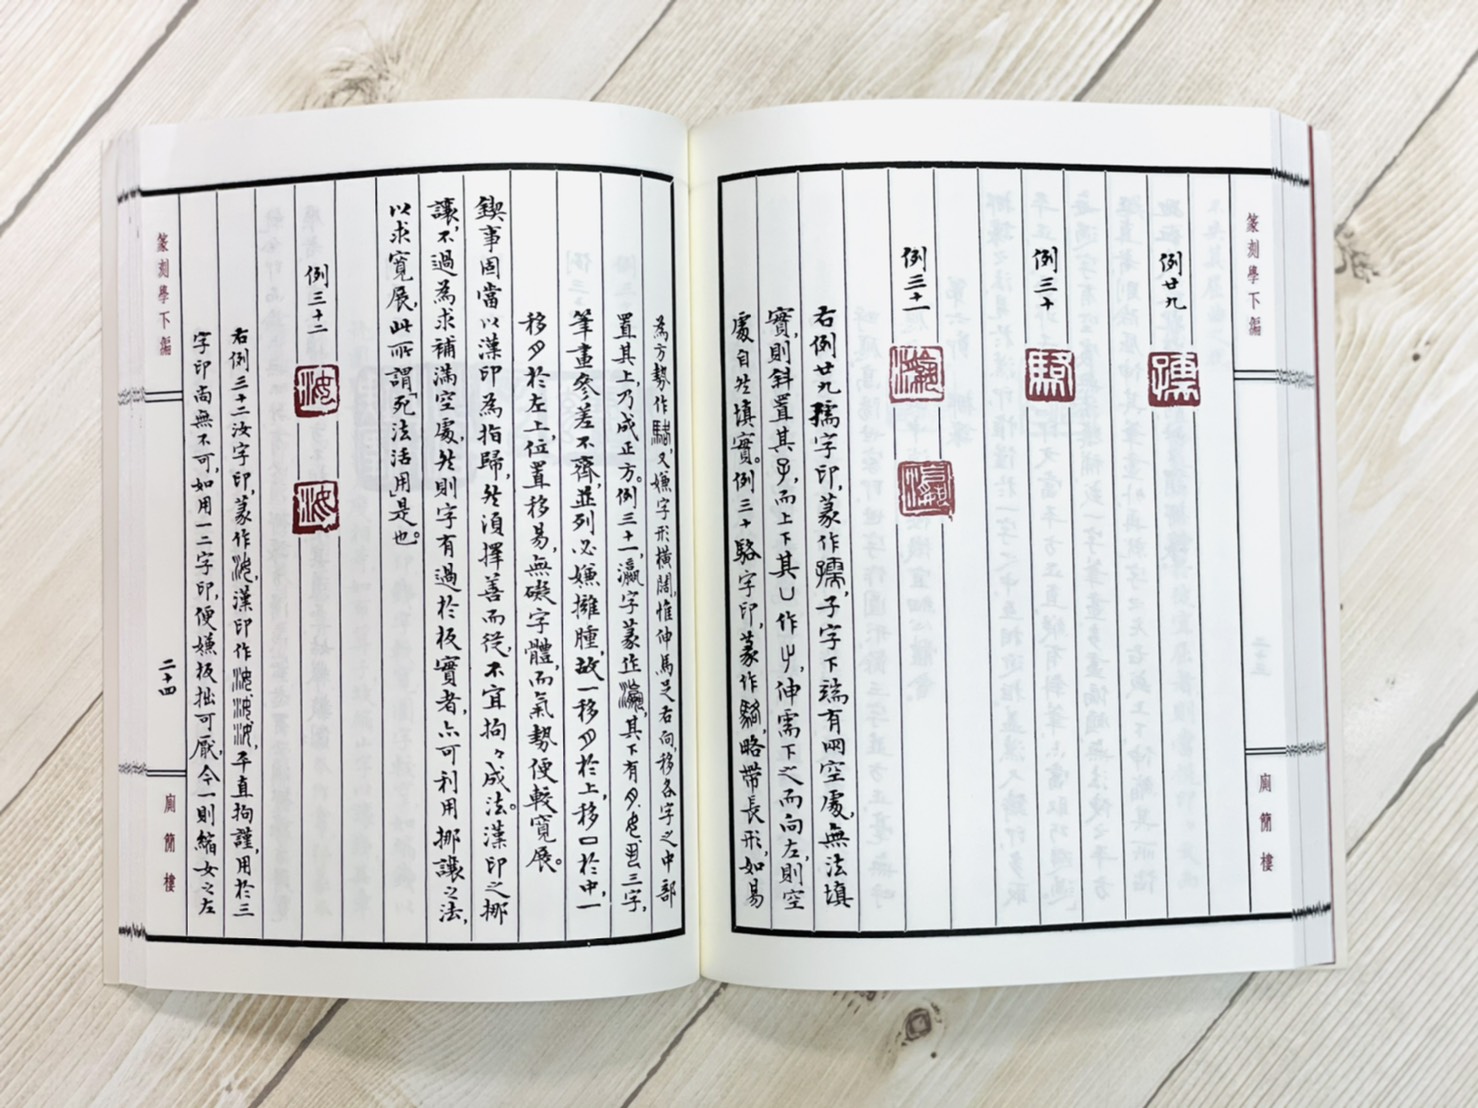 篆刻學下編
廁簡樓
例廿九
例三十
例三十一
右例廿九孺字印，篆作，子字下端有兩空處，無法填
實，則斜置其子，而上下其凵作屮，伸需下之而向左，則空
處自然填實。例三十駱字印，篆作，略帶長形，如易
為方勢作，又嫌字形橫闊，惟伸馬足右向，移各字之中部
置其上，乃成正方。例三十一，瀛字篆作，其下有三字，
筆畫參差不齊，並列必嫌擁腫，故一移於上，移口於中，一
移於左上，位置移易，無礙字體，而氣勢便較寬展。
鍥事固當以漢印為指歸，然須擇善而從，不宜拘々成法。漢印之挪
讓，不過為求補滿空處，然則字有過於板實者，亦可利用挪讓之法，
以求寬展，此所謂「死法活用」是也。
例三十二
右例三十二汝字印，篆作，漢印作，平直拘謹，用於三
字印尚無不可，如用一二字印，便嫌板拙可厭，今一則縮女之左
篆刻學下編
二十四
廁簡樓